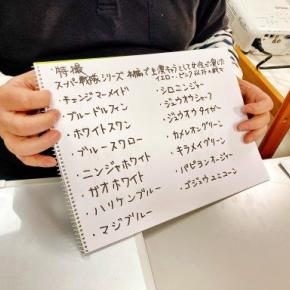 ・特撮
スーパー戦隊シリーズ 本編で上演キャラとして女性が着た
イエロー・ピンク以外の戦士
・チェンジマーメイド
・ブルードルフィン
・ホワイトスワン
・ブルースワロー
・ニンジャホワイト
・ガオホワイト
・ハリケンブルー
・マジブルー
・シロニンジャー
・ジュウオウシャーク
・ジュウオウタイガー
・カメレオングリーン
・キラメイグリーン
・パピヨンオージャー
・ゴジュウユニコーン